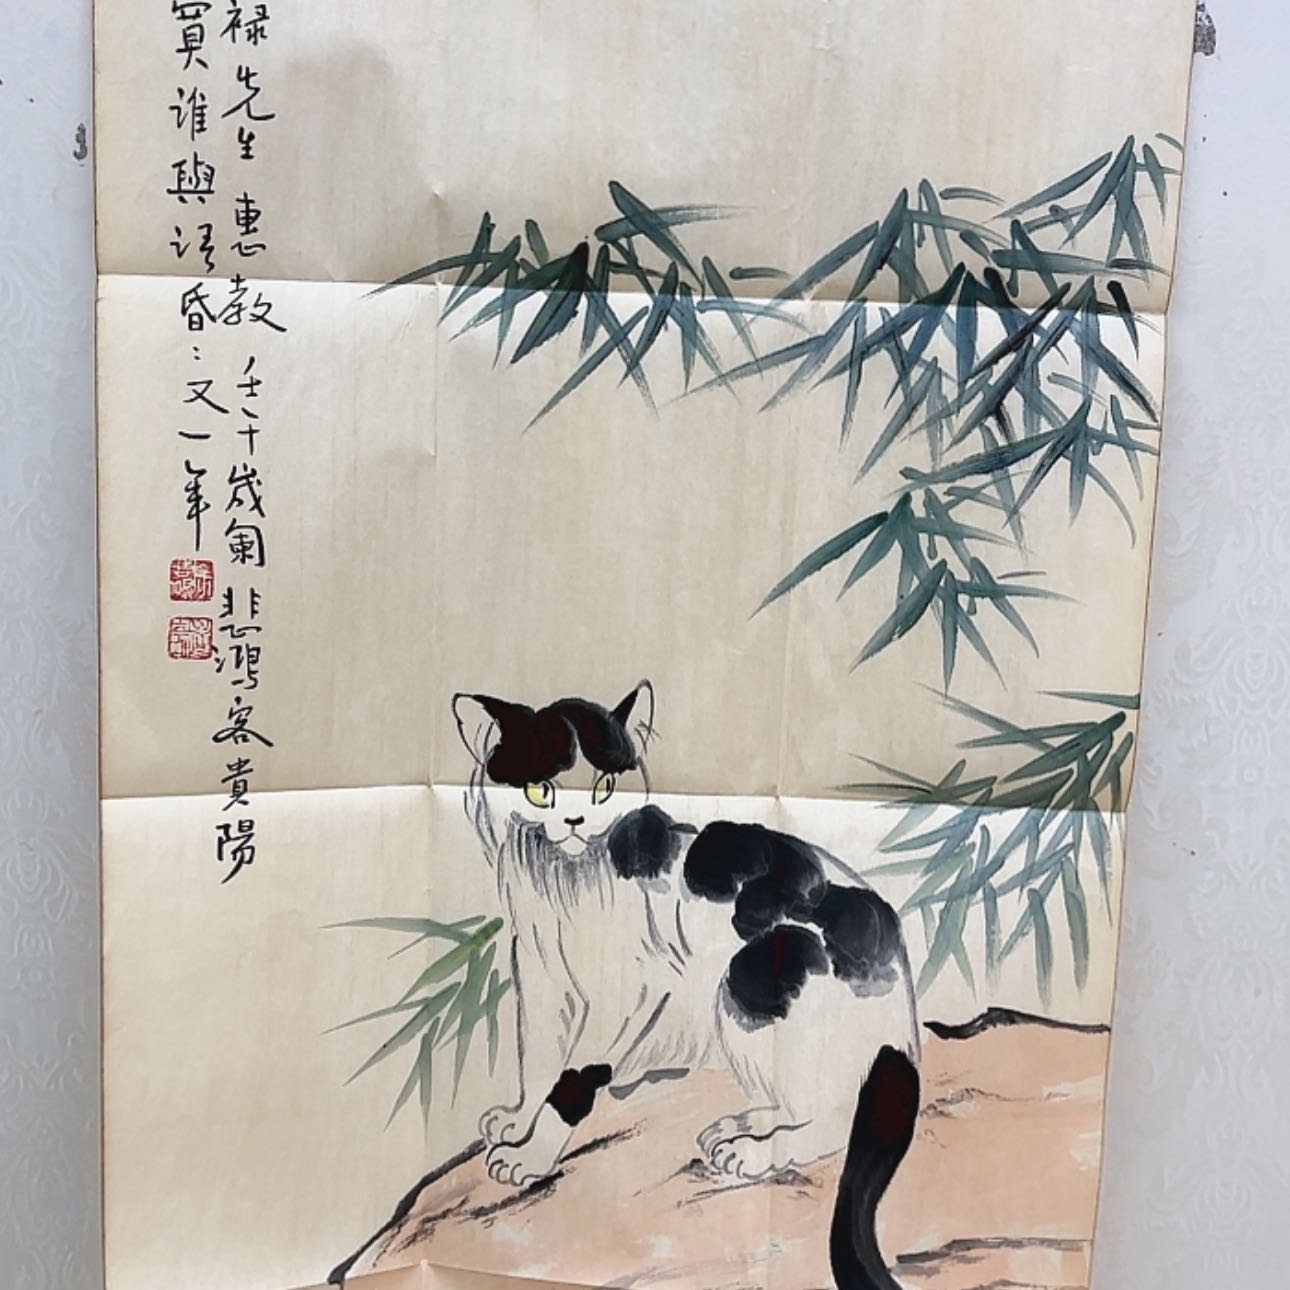 誰與昏〻又一年
禄先生惠教 壬午歲闌 悲鴻客貴陽